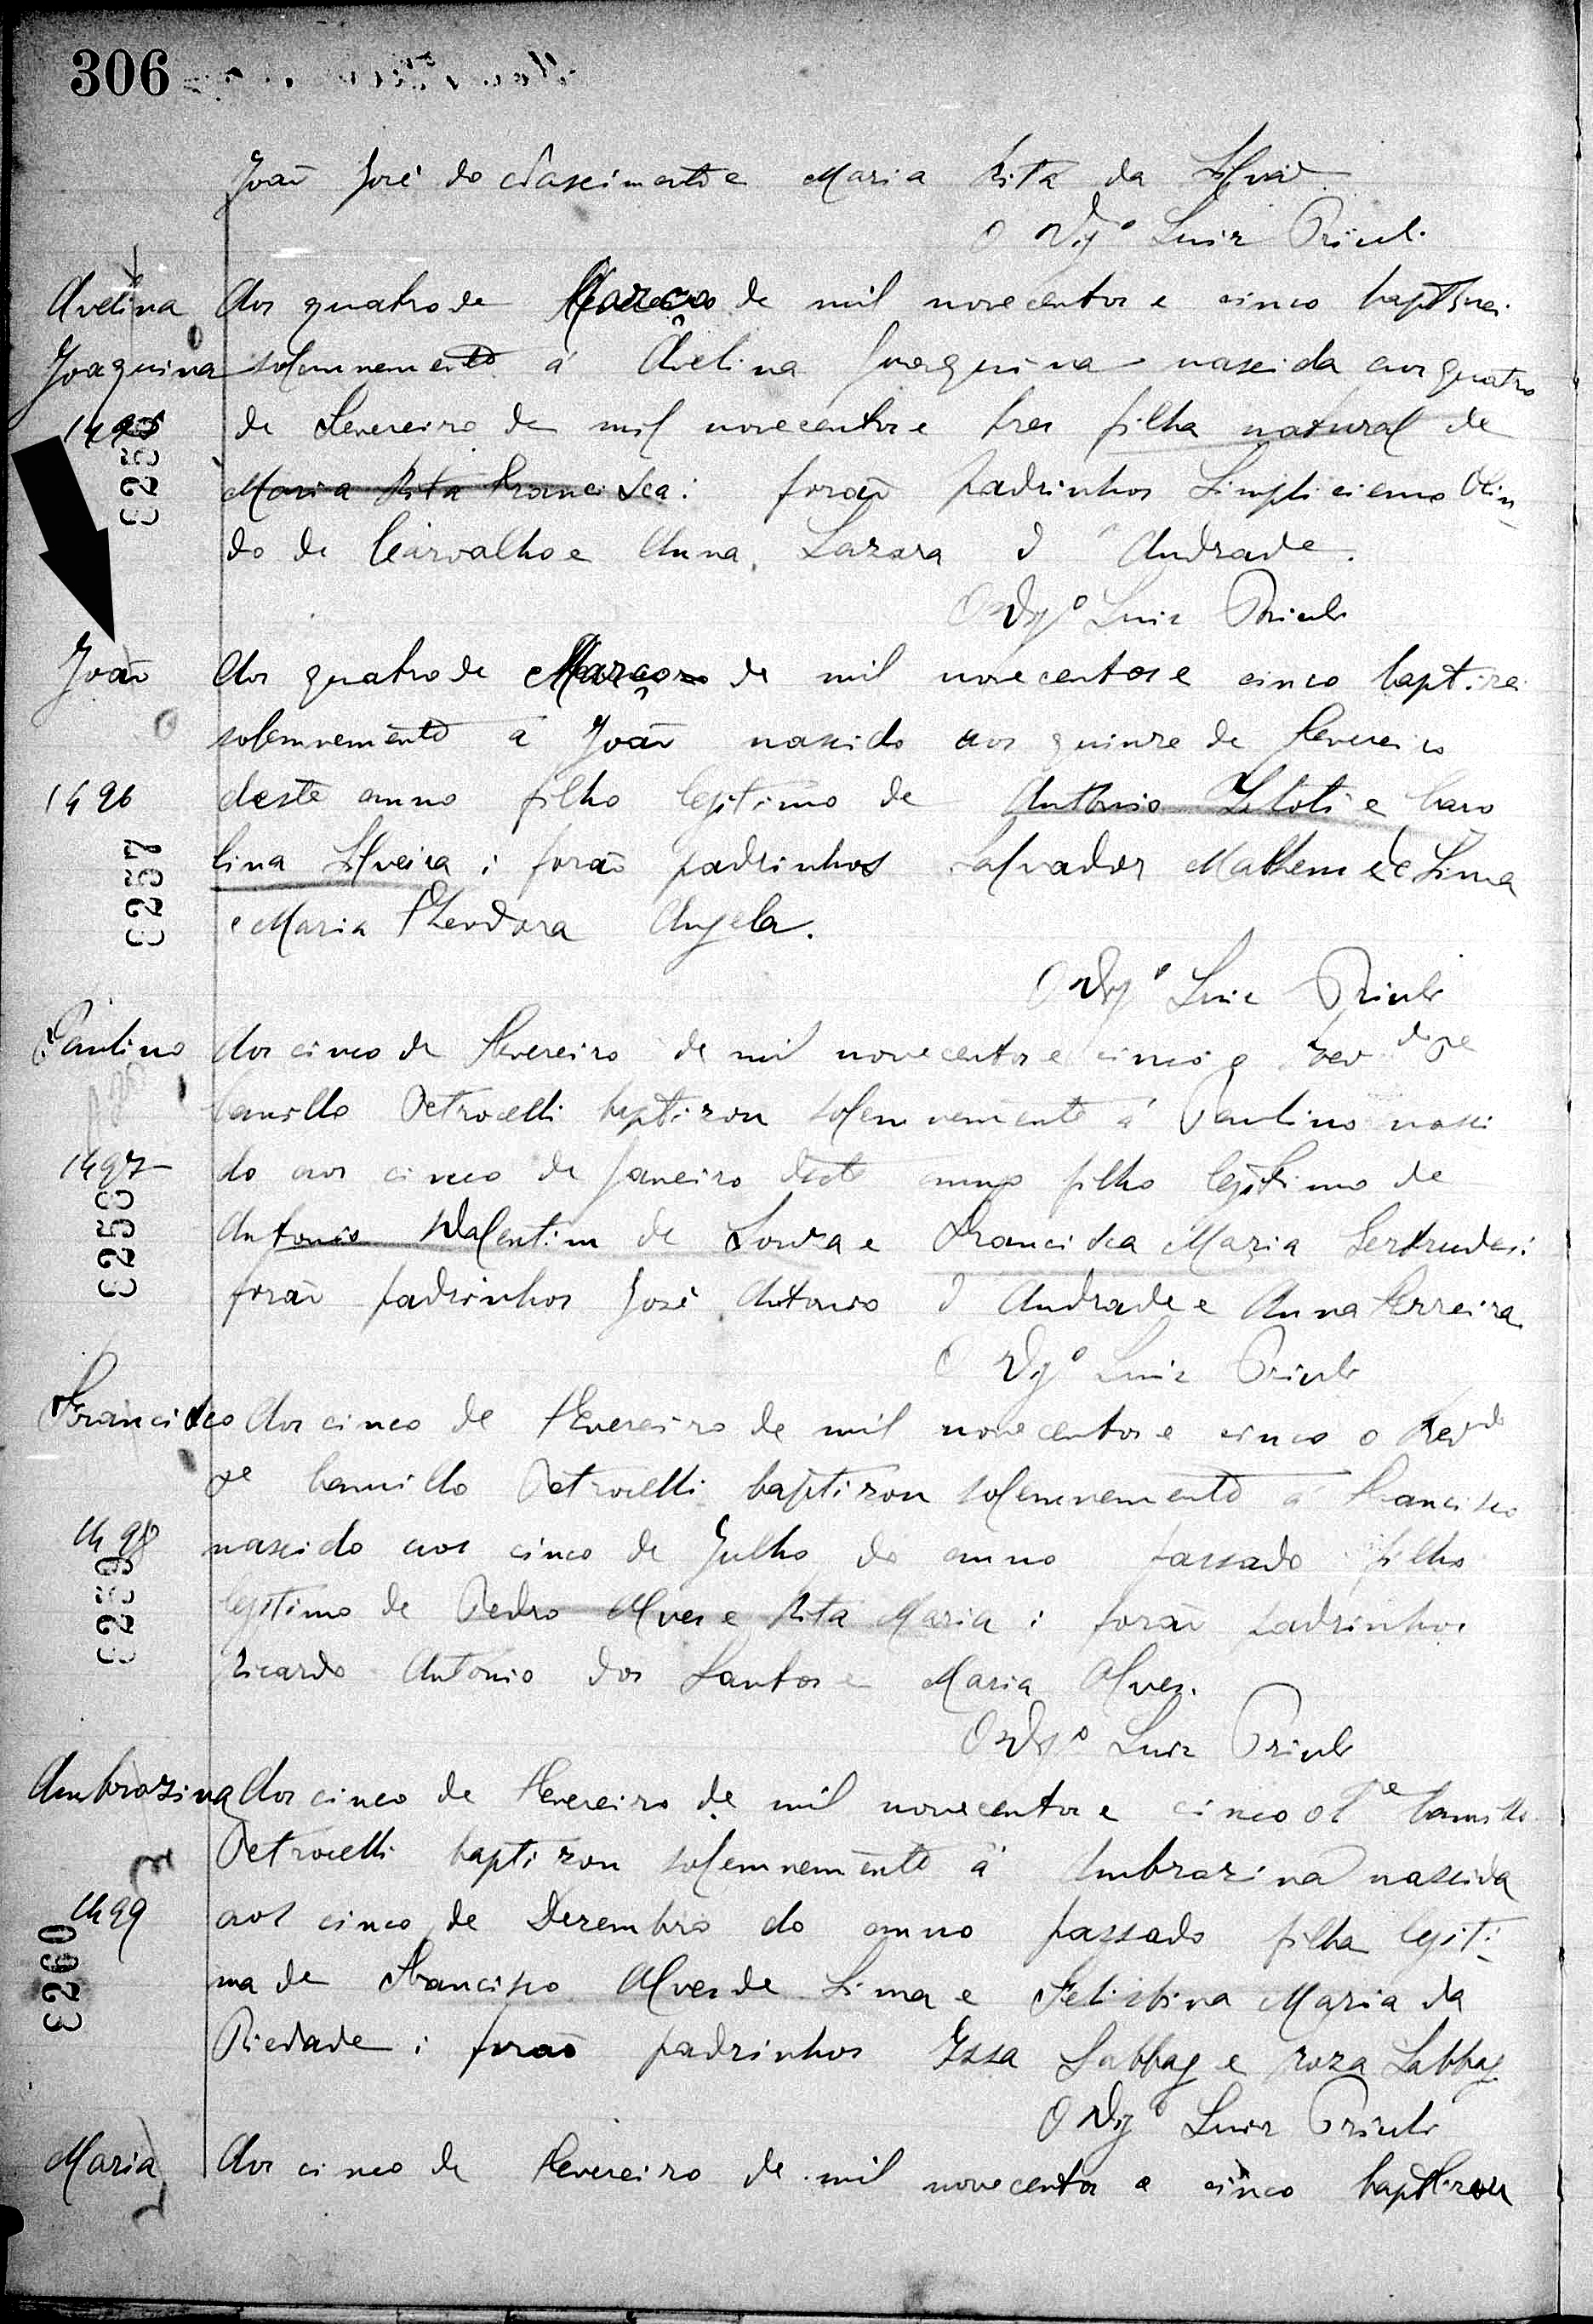 306
João José do Nascimento e Maria Rita da Silva.
O Vigº Luiz Priuli
Avelina Aos quatro de Março de mil novecentos e cinco baptisei
Joaquina solemnemente á Avelina Joaquina nascida aos quatro
1495 de Fevereiro de mil novecentos e tres filha natural de
Maria Rita Francisca: forão padrinhos Simpliciano Olin
do de Carvalho e Anna Lazara d'Andrade.
O Vigº Luiz Priuli
João Aos quatro de Março de mil novecentos e cinco baptizei
solemnemente a João nascido aos quinze de Fevereiro
1496 deste anno filho legitimo de Antonio e Caro
E257 lina Silveira: forão padrinhos Salvador Matheus de Lima
e Maria Theodora Angela.
O Vigº Luiz Priuli
Paulino Aos cinco de Fevereiro de mil novecentos e cinco o Revdo Pe
Camillo Petrocelli baptizou solemnemente á Paulino nasci
1497 do aos cinco de Janeiro deste anno filho legitimo de
E258 Antonio Valentim de Souza e Francisca Maria Gertrudes:
forão padrinhos José Antonio d'Andrade e Anna Ferreira.
O Vigº Luiz Priuli
Francisco Aos cinco de Fevereiro de mil novecentos e cinco o Revdo
Pe Camillo Petrocelli baptizou solemnemente á Francisco
1498 nascido aos cinco de Julho do anno passado filho
E259 legitimo de Pedro Alves e Rita Maria: forão padrinhos
Ricardo Antonio dos Santos e Maria Alves.
O Vigº Luiz Priuli
Ambrozina Aos cinco de Fevereiro de mil novecentos e cinco o Pe Camillo
Petrocelli baptizou solemnemente á Ambrozina nascida
1499 aos cinco de Dezembro do anno passado filha legiti
E260 ma de Francisco Alves de Lima e Felisbina Maria da
Piedade: forão padrinhos Issa Sabbag e roza Sabbag.
O Vigº Luiz Priuli
Maria Aos cinco de Fevereiro de mil novecentos e cinco baptizou